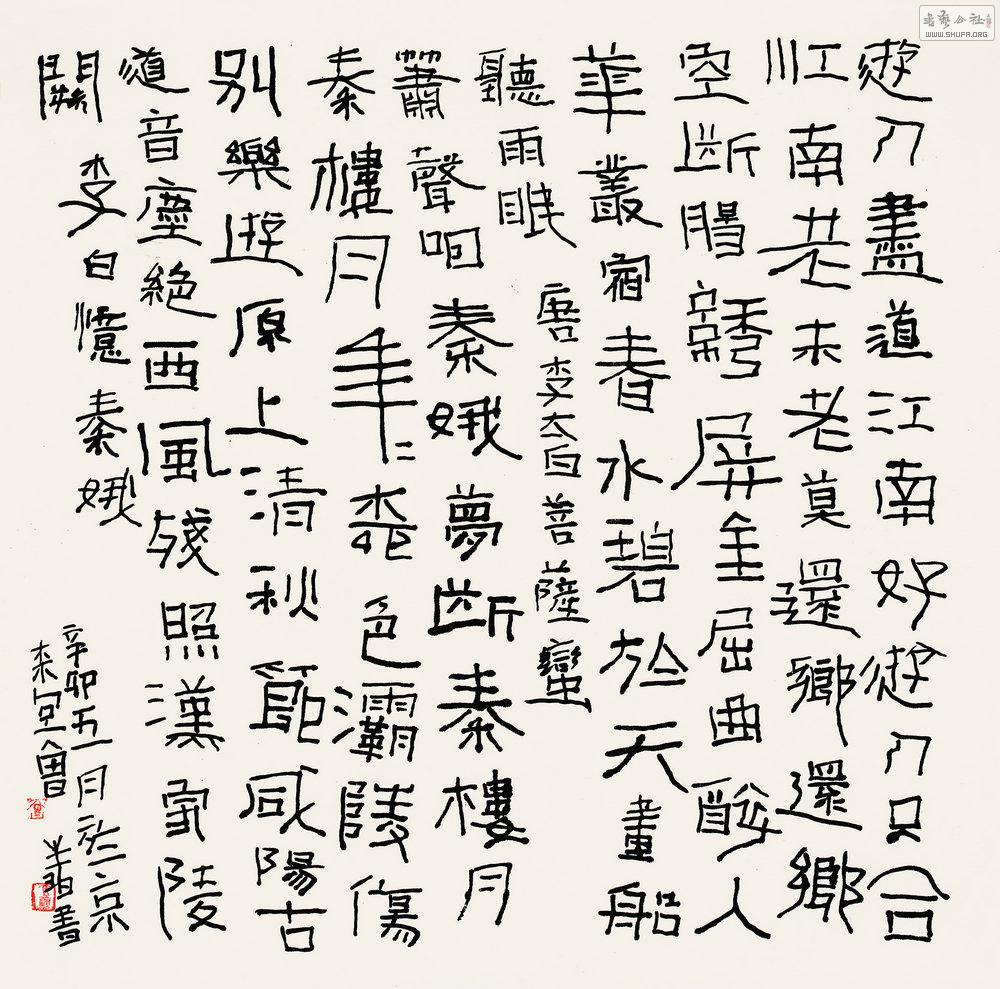 遊人盡道江南好遊人只合
江南老未老莫還鄉還鄉
空斷腸繡屏金屈曲醉人
華叢宿春水碧於天畫船
聽雨眠 唐李太白菩薩蠻
簫聲咽秦娥夢斷秦樓月
秦樓月年〻柳色灞陵傷
別樂遊原上清秋節咸陽古
道音塵絕西風殘照漢家陵
闕 李白憶秦娥
辛卯五一月於京
書
书艺公社
WWW.SHUFA.ORG